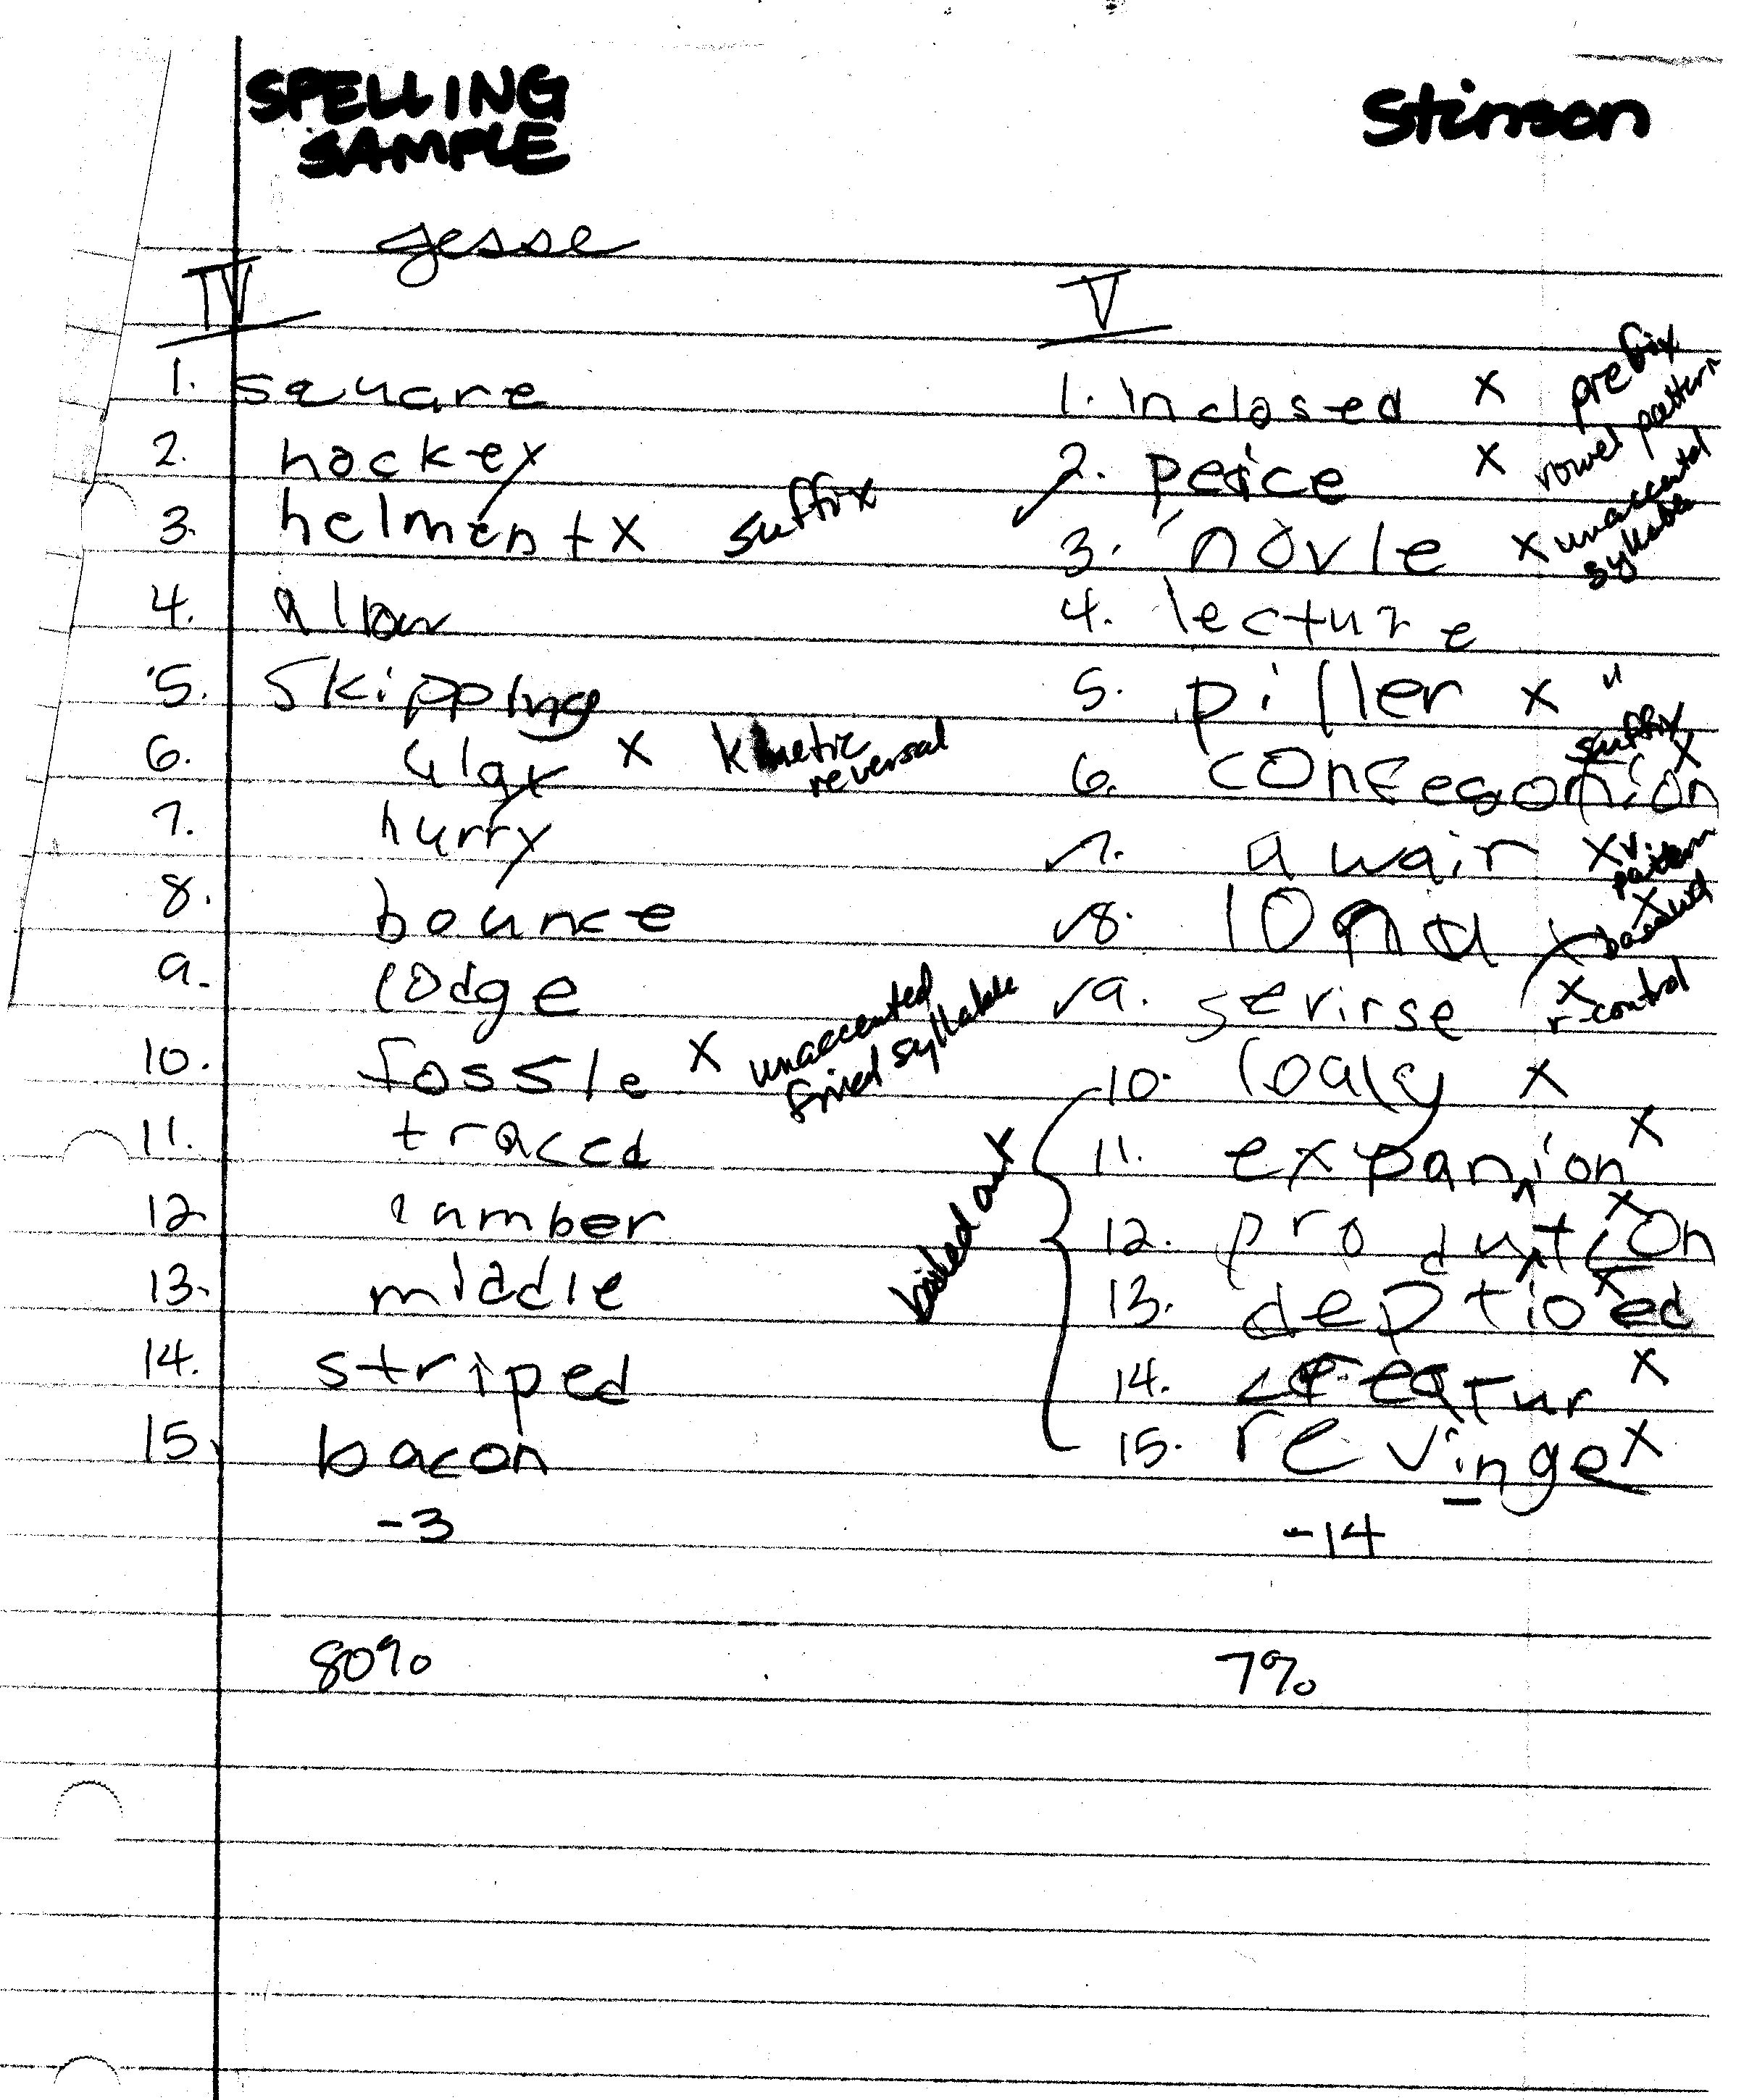 SPELLING
SAMPLE
Stinson
Jesse
IV
1. square
2. hockey
3. helment X suffix
4. allow
5. skipping
6. X kinetic
reversal
7. hurry
8. bounce
9. lodge
10. fossle X unaccented
final syllable
11. traced
12. lumber
13. middle
14. striped
15. bacon
-3
80%
V
1. inclosed X prefix
2. peice X vowel pattern
3. novle X unaccented
syllable
4. lecture
5. piller X "
6. confesomion suffix X
7. awair X v.
pattern
8. X
9. sevirse X
r-control
bailed out
10. loaly X
11. expanion X
12. prodution X
13. deptioed X
14. creatur X
15. revinge X
-14
7%